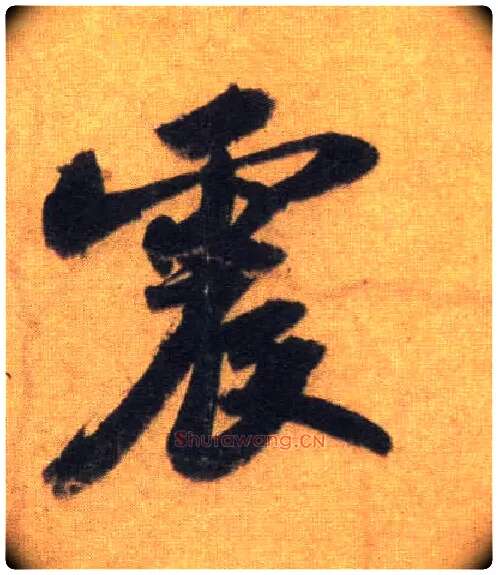 震
Shufawang.CN